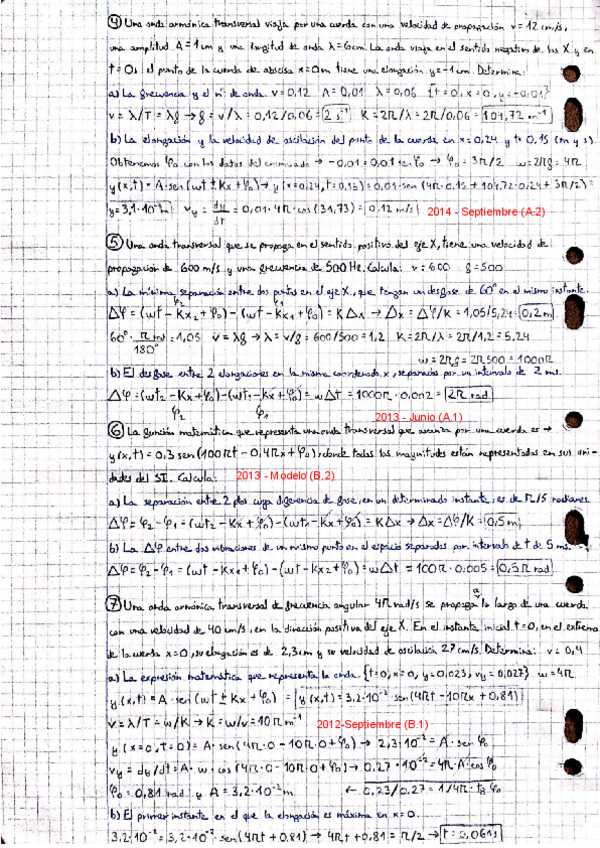 ④ Una onda armónica transversal viaja por una cuerda con una velocidad de propagación v = 12 cm/s,
una amplitud A = 1 cm y una longitud de onda λ = 6 cm. La onda viaja en el sentido negativo de las X y en
t = 0s el punto de la cuerda de abscisa x = 0m tiene una elongación y = -1 cm. Determina:
a) La frecuencia y el nº de onda. v = 0,12 A = 0,01 λ = 0,06 {t=0, x=0, y=-0,01}
v = λ/T = λf → f = v/λ = 0,12/0,06 = 2 s⁻¹ K = 2π/λ = 2π/0,06 = 104,72 m⁻¹
b) La elongación y la velocidad de oscilación del punto de la cuerda en x = 0,24 y t = 0,15 (m y s)
Obtenemos φ₀ con los datos del enunciado → -0,01 = 0,01 sen φ₀ → φ₀ = 3π/2 w = 2πf = 4π
y(x,t) = A·sen(wt ± Kx + φ₀) → y(x=0,24, t=0,15) = 0,01·sen(4π·0,15 + 104,72·0,24 + 3π/2) =
y = 3,1·10⁻³m v_y = dy/dt = 0,01·4π·cos(31,73) = 0,12 m/s 2014 - Septiembre (A.2)
⑤ Una onda transversal que se propaga en el sentido positivo del eje X, tiene una velocidad de
propagación de 600 m/s y una frecuencia de 500 Hz. Calcula: v = 600 f = 500
a) La mínima separación entre dos puntos en el eje X, que tengan un desfase de 60° en el mismo instante.
Δφ = (wt - Kx₂ + φ₀) - (wt - Kx₁ + φ₀) = KΔx → Δx = Δφ/K = 1,05/5,24 = 0,2 m
60° · π rad/180° = 1,05 v = λf → λ = v/f = 600/500 = 1,2 K = 2π/λ = 2π/1,2 = 5,24
w = 2πf = 2π500 = 1000π
b) El desfase entre 2 elongaciones en la misma coordenada x, separadas por un intervalo de 2 ms.
Δφ = (wt₂ - Kx + φ₀) - (wt₁ - Kx + φ₀) = wΔt = 1000π·0,002 = 2π rad
φ₂ φ₁ 2013 - Junio (A.1)
⑥ La función matemática que representa una onda transversal que avanza por una cuerda es →
y(x,t) = 0,3 sen(100πt - 0,4πx + φ₀), donde todas las magnitudes están representadas en sus uni-
dades del SI. Calcula: 2013 - Modelo (B.2)
a) La separación entre 2 ptos cuya diferencia de fase, en un determinado instante, es de π/5 radianes.
Δφ = φ₂ - φ₁ = (wt₂ - Kx + φ₀) - (wt₁ - Kx + φ₀) = KΔx → Δx = Δφ/K = 0,5 m
b) La Δφ entre dos vibraciones de un mismo punto en el espacio separadas por intervalo de t de 5 ms.
Δφ = φ₂ - φ₁ = (wt - Kx₁ + φ₀) - (wt - Kx₂ + φ₀) = wΔt = 100π·0,005 = 0,5π rad
⑦ Una onda armónica transversal de frecuencia angular 4π rad/s se propaga a lo largo de una cuerda
con una velocidad de 40 cm/s, en la dirección positiva del eje X. En el instante inicial t = 0, en el extremo
de la cuerda x = 0, su elongación es de 2,3 cm y su velocidad de oscilación 27 cm/s. Determina: v = 0,4
a) La expresión matemática que representa la onda {t=0; x=0, y=0,023, vy=0,027} w = 4π
y(x,t) = A·sen(wt ± Kx + φ₀) = y(x,t) = 3,2·10⁻²·sen(4πt - 10πx + 0,81)
v = λ/T = w/K → K = w/v = 10π m⁻¹ 2012-Septiembre (B.1)
y(x=0, t=0) = A·sen(4π·0 - 10π·0 + φ₀) → 2,3·10⁻² = A·sen φ₀
v_y = dy/dt = A·w·cos(4π·0 - 10π·0 + φ₀) → 0,27·10⁻² = 4π·A·cos φ₀
φ₀ = 0,81 rad y A = 3,2·10⁻² m ← 0,23/0,27 = 1/4π·tg φ₀
b) El primer instante en el que la elongación es máxima en x = 0.
3,2·10⁻² = 3,2·10⁻²·sen(4πt + 0,81) → 4πt + 0,81 = π/2 → t = 0,061s